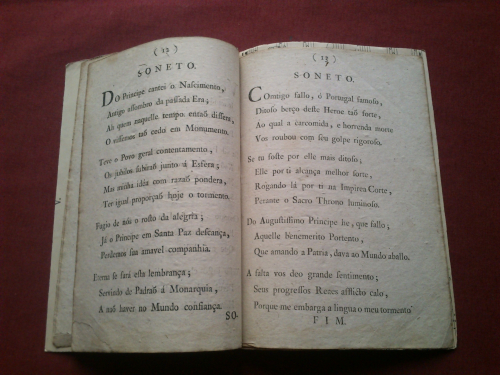 ( 12 )
SONETO.
DO Principe cantei o Nascimento,
Antigo assombro da passada Era;
Ah quem naquelle tempo entaõ dissera,
O visemos taõ cedo em Monumento.
Teve o Povo geral contentamento,
Os jubilos subiraõ junto á Esfera;
Mas minha idéa com razaõ pondera,
Ter igual proporçaõ hoje o tormento.
Fugio de nós o rosto da alegria;
Já o Principe em Santa Paz descança,
Perdemos sua amavel companhia.
Eterna se fará esta lembrança;
Servindo de Padraõ á Monarquia,
A naõ haver no Mundo confiança.
SO-
( 13 )
SONETO.
COmtigo fallo, ó Portugal famoso,
Ditoso berço deste Heroe taõ forte,
Ao qual a carcomida, e horrenda morte
Vos roubou com seu golpe rigoroso.
Se tu foste por elle mais ditoso;
Elle por ti alcança melhor sorte,
Rogando lá por ti na Impirea Corte,
Perante o Sacro Throno luminoso.
Do Augustissimo Principe he, que fallo;
Aquelle benemerito Portento,
Que amando a Patria, dava ao Mundo aballo.
A falta vos deo grande sentimento;
Seus progressos Regios afflicto calo,
Porque me embarga a lingua o meu tormento
FIM.